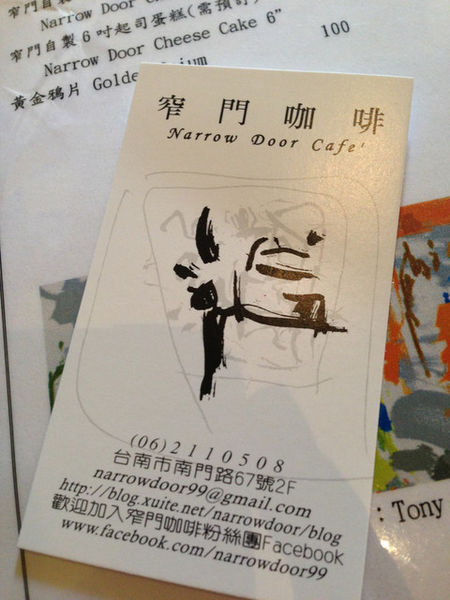 窄門自製6吋起司蛋糕(需預訂)
Narrow Door Cheese Cake 6"
100
黃金鴉片 Golden Opium
窄門咖啡
Narrow Door Cafe'
(06)2110508
台南市南門路67號2F
narrowdoor99@gmail.com
http://blog.xuite.net/narrowdoor/blog
歡迎加入窄門咖啡粉絲團Facebook
www.facebook.com/narrowdoor99
: Tony